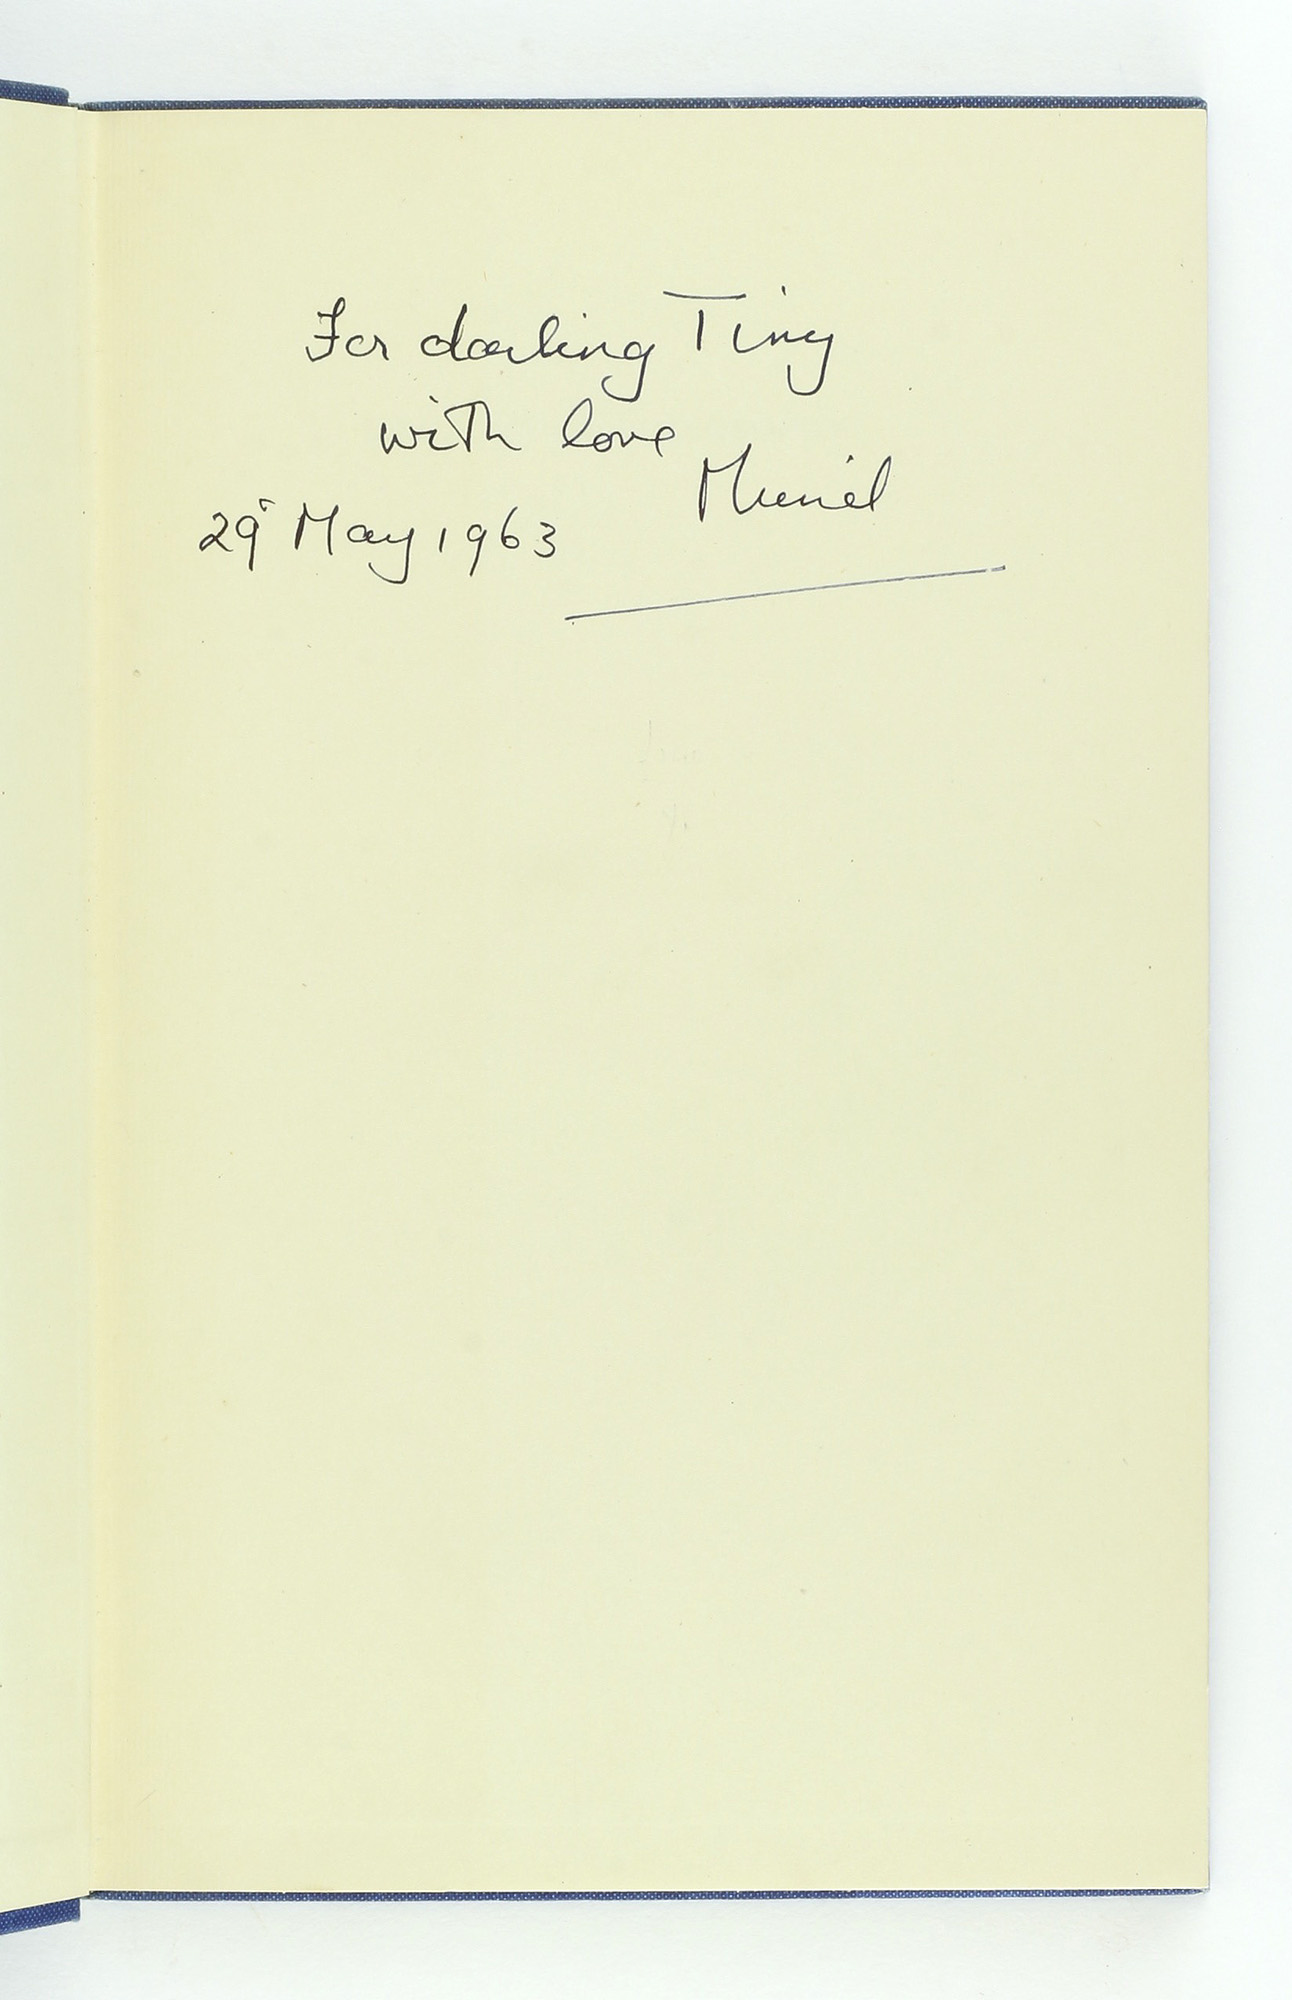 For darling Tiny
with love
Muriel
29 May 1963